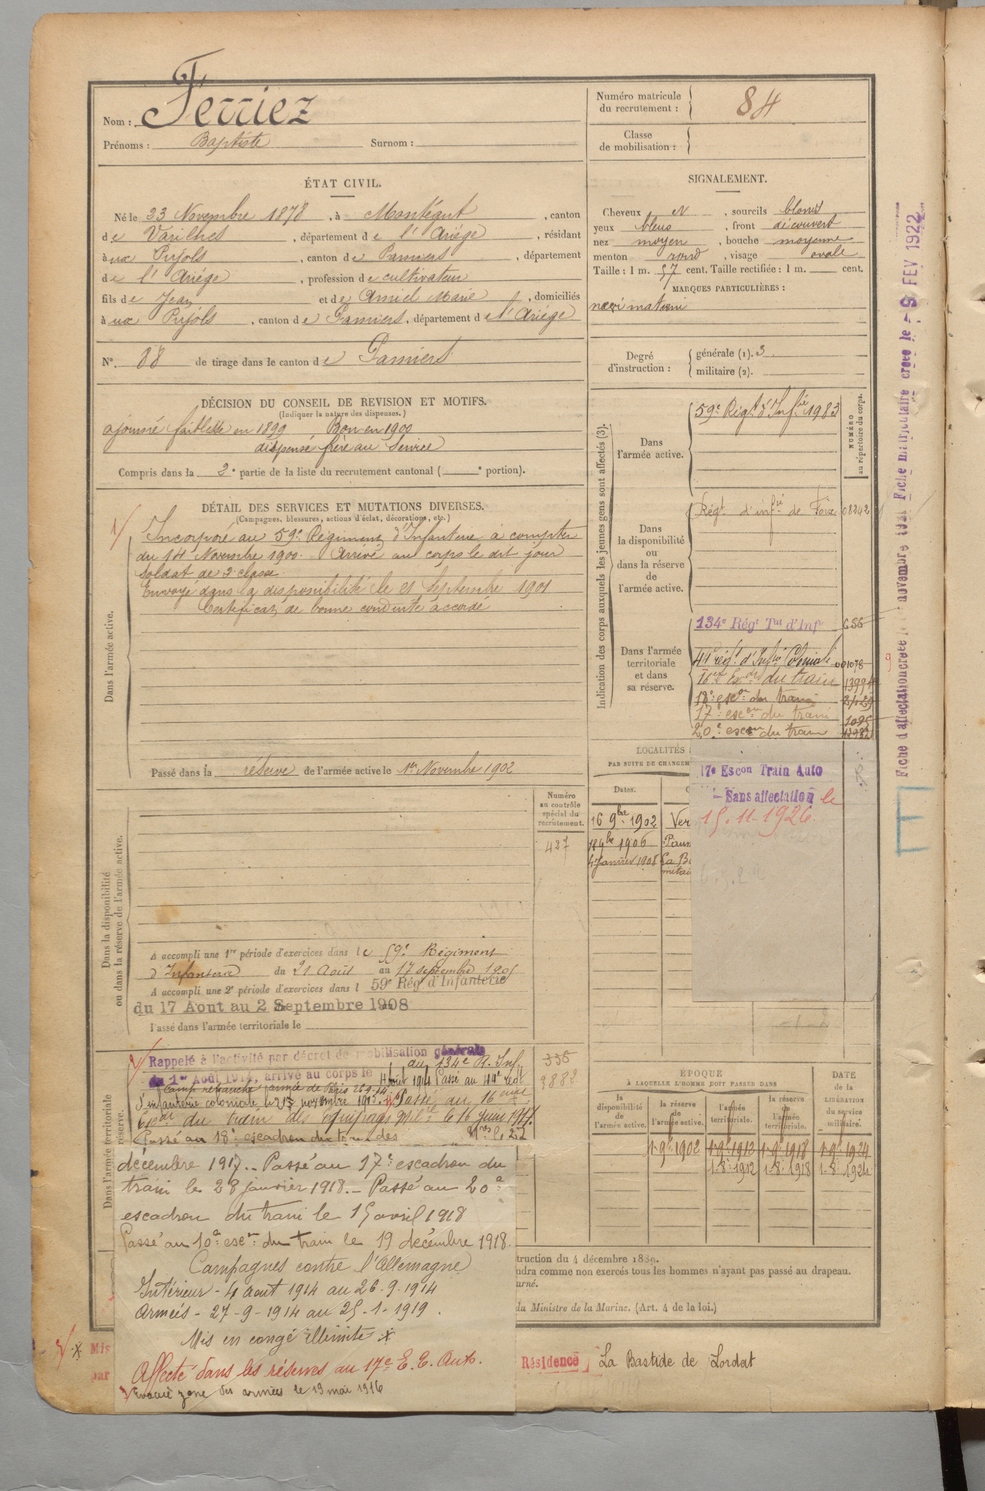 Nom : Ferriez
Prénoms : Baptiste Surnom :
Numéro matricule du recrutement : 84
Classe de mobilisation :
ÉTAT CIVIL.
Né le 23 Novembre 1878, à Montégut, canton
de Varilhes, département de l'Ariége, résidant
à ux Pujols, canton de Pamiers, département
de l'Ariége, profession de cultivateur
fils de Jean et de Amiel Marie, domiciliés
à ux Pujols, canton de Pamiers, département de l'Ariége
N°. 88 de tirage dans le canton de Pamiers
SIGNALEMENT.
Cheveux N, sourcils blonds
yeux bleus, front découvert
nez moyen, bouche moyenne
menton rond, visage ovale
Taille : 1 m. 57 cent. Taille rectifiée : 1 m. cent.
MARQUES PARTICULIÈRES :
Degré d'instruction : générale (1). 3
militaire (2).
DÉCISION DU CONSEIL DE REVISION ET MOTIFS.
(Indiquer la nature des dispenses.)
ajourné faiblesse en 1899 Bon en 1900
dispensé frère au Service
Compris dans la 2e partie de la liste du recrutement cantonal ( e portion).
DÉTAIL DES SERVICES ET MUTATIONS DIVERSES.
(Campagnes, blessures, actions d'éclat, décorations, etc.)
Dans l'armée active.
Incorporé au 59e Régiment d'Infanterie à compter
du 14 Novembre 1900. Arrivé au corps le dit jour
soldat de 2e classe
Envoyé dans la disponibilité le 21 Septembre 1901
Certificat de bonne conduite accordé
Passé dans la réserve de l'armée active le 1er Novembre 1902
Indication des corps auxquels les jeunes gens sont affectés (3).
NUMÉRO au répertoire du corps.
Dans l'armée active.
59e Régt d'Infie 1983
Dans la disponibilité ou dans la réserve de l'armée active.
Régt d'infie de Foix 08242
Dans l'armée territoriale et dans sa réserve.
134e Régt Tal d'Infie 656
44e régt d'Infie Coloniale 01078
16me escon du train
18e escon du train
17e escon du train
20e escon du train
17e Escon Train Auto
- Sans affectation le
15-11-1926
LOCALITÉS
PAR SUITE DE CHANGEM
Dates.
16 9bre 1902 Ver
1906 Pam
4 Janvier 1908 La B
Numéro au contrôle spécial du recrutement.
427
Dans la disponibilité ou dans la réserve de l'armée active.
A accompli une 1re période d'exercices dans le 59e Régiment
d'Infanterie du 21 Août au 17 septembre 1905
A accompli une 2e période d'exercices dans l 59e Rég d'Infanterie
du 17 Aout au 2 Septembre 1908
Passé dans l'armée territoriale le
Dans l'armée territoriale
réserve.
Rappelé à l'activité par décret de mobilisation générale
du 1er Août 1914, arrivé au corps le au 134e R. Inf.
4 Août 1914 Passé au 44e régt
Camp retranché armée de Paris 26-9-14
d'infanterie coloniale le 23 novembre 1915. Passé au 16eme
Escon du train des équipages mlre le 16 Juin 1917.
Passé au 18e escadron du train des
décembre 1917. Passé au 17e escadron du
train le 28 janvier 1918. - Passé au 20e
escadron du train le 15 avril 1918
Passé au 10e escon du train le 19 décembre 1918.
Campagnes contre l'Allemagne
Intérieur - 4 aout 1914 au 26-9-1914
Armées - 27-9-1914 au 25-1-1919.
Mis en congé illimité
Affecté dans les réserves au 17e E. E. Auto.
Evacué zone des armées le 19 mai 1916
Mis
par
ÉPOQUE
À LAQUELLE L'HOMME DOIT PASSER DANS
la disponibilité de l'armée active.
la réserve de l'armée active.
l'armée territoriale.
la réserve de l'armée territoriale.
DATE de la LIBÉRATION du service militaire.
1-9-1902 1-9-1912 1-9-1918 1-9-1924
1-8-1912 1-8-1918 1-8-1924
struction du 4 décembre 1889.
endra comme non exercés tous les hommes n'ayant pas passé au drapeau.
ourné.
du Ministre de la Marine. (Art. 4 de la loi.)
Résidence La Bastide de Lordat
Fiche d'affectation créée novembre 1921 Fiche matriculaire créée le - 9 FEV 1922